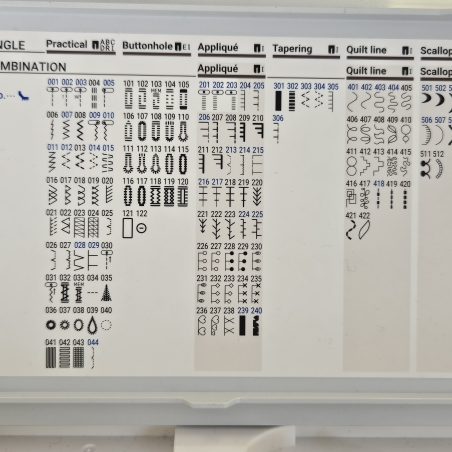 NGLE Practical ABC DRL Buttonhole EI Appliqué I Tapering I Quilt line I Scallop
OMBINATION Appliqué I Quilt line I Scallop
001 002 003 004 005 101 102 103 104 105 201 202 203 204 205 301 302 303 304 305 401 402 403 404 405 501 502
MEM
006 007 008 009 010 106 107 108 109 110 206 207 208 209 210 306 406 407 408 409 410 506 507
011 012 013 014 015 111 112 113 114 115 211 212 213 214 215 411 412 413 414 415 511 512
016 017 018 019 020 116 117 118 119 120 216 217 218 219 220 416 417 418 419 420
021 022 023 024 025 121 122 221 222 223 224 225 421 422
026 027 028 029 030 226 227 228 229 230
031 032 033 034 035 231 232 233 234 235
MEM
036 037 038 039 040 236 237 238 239 240
041 042 043 044